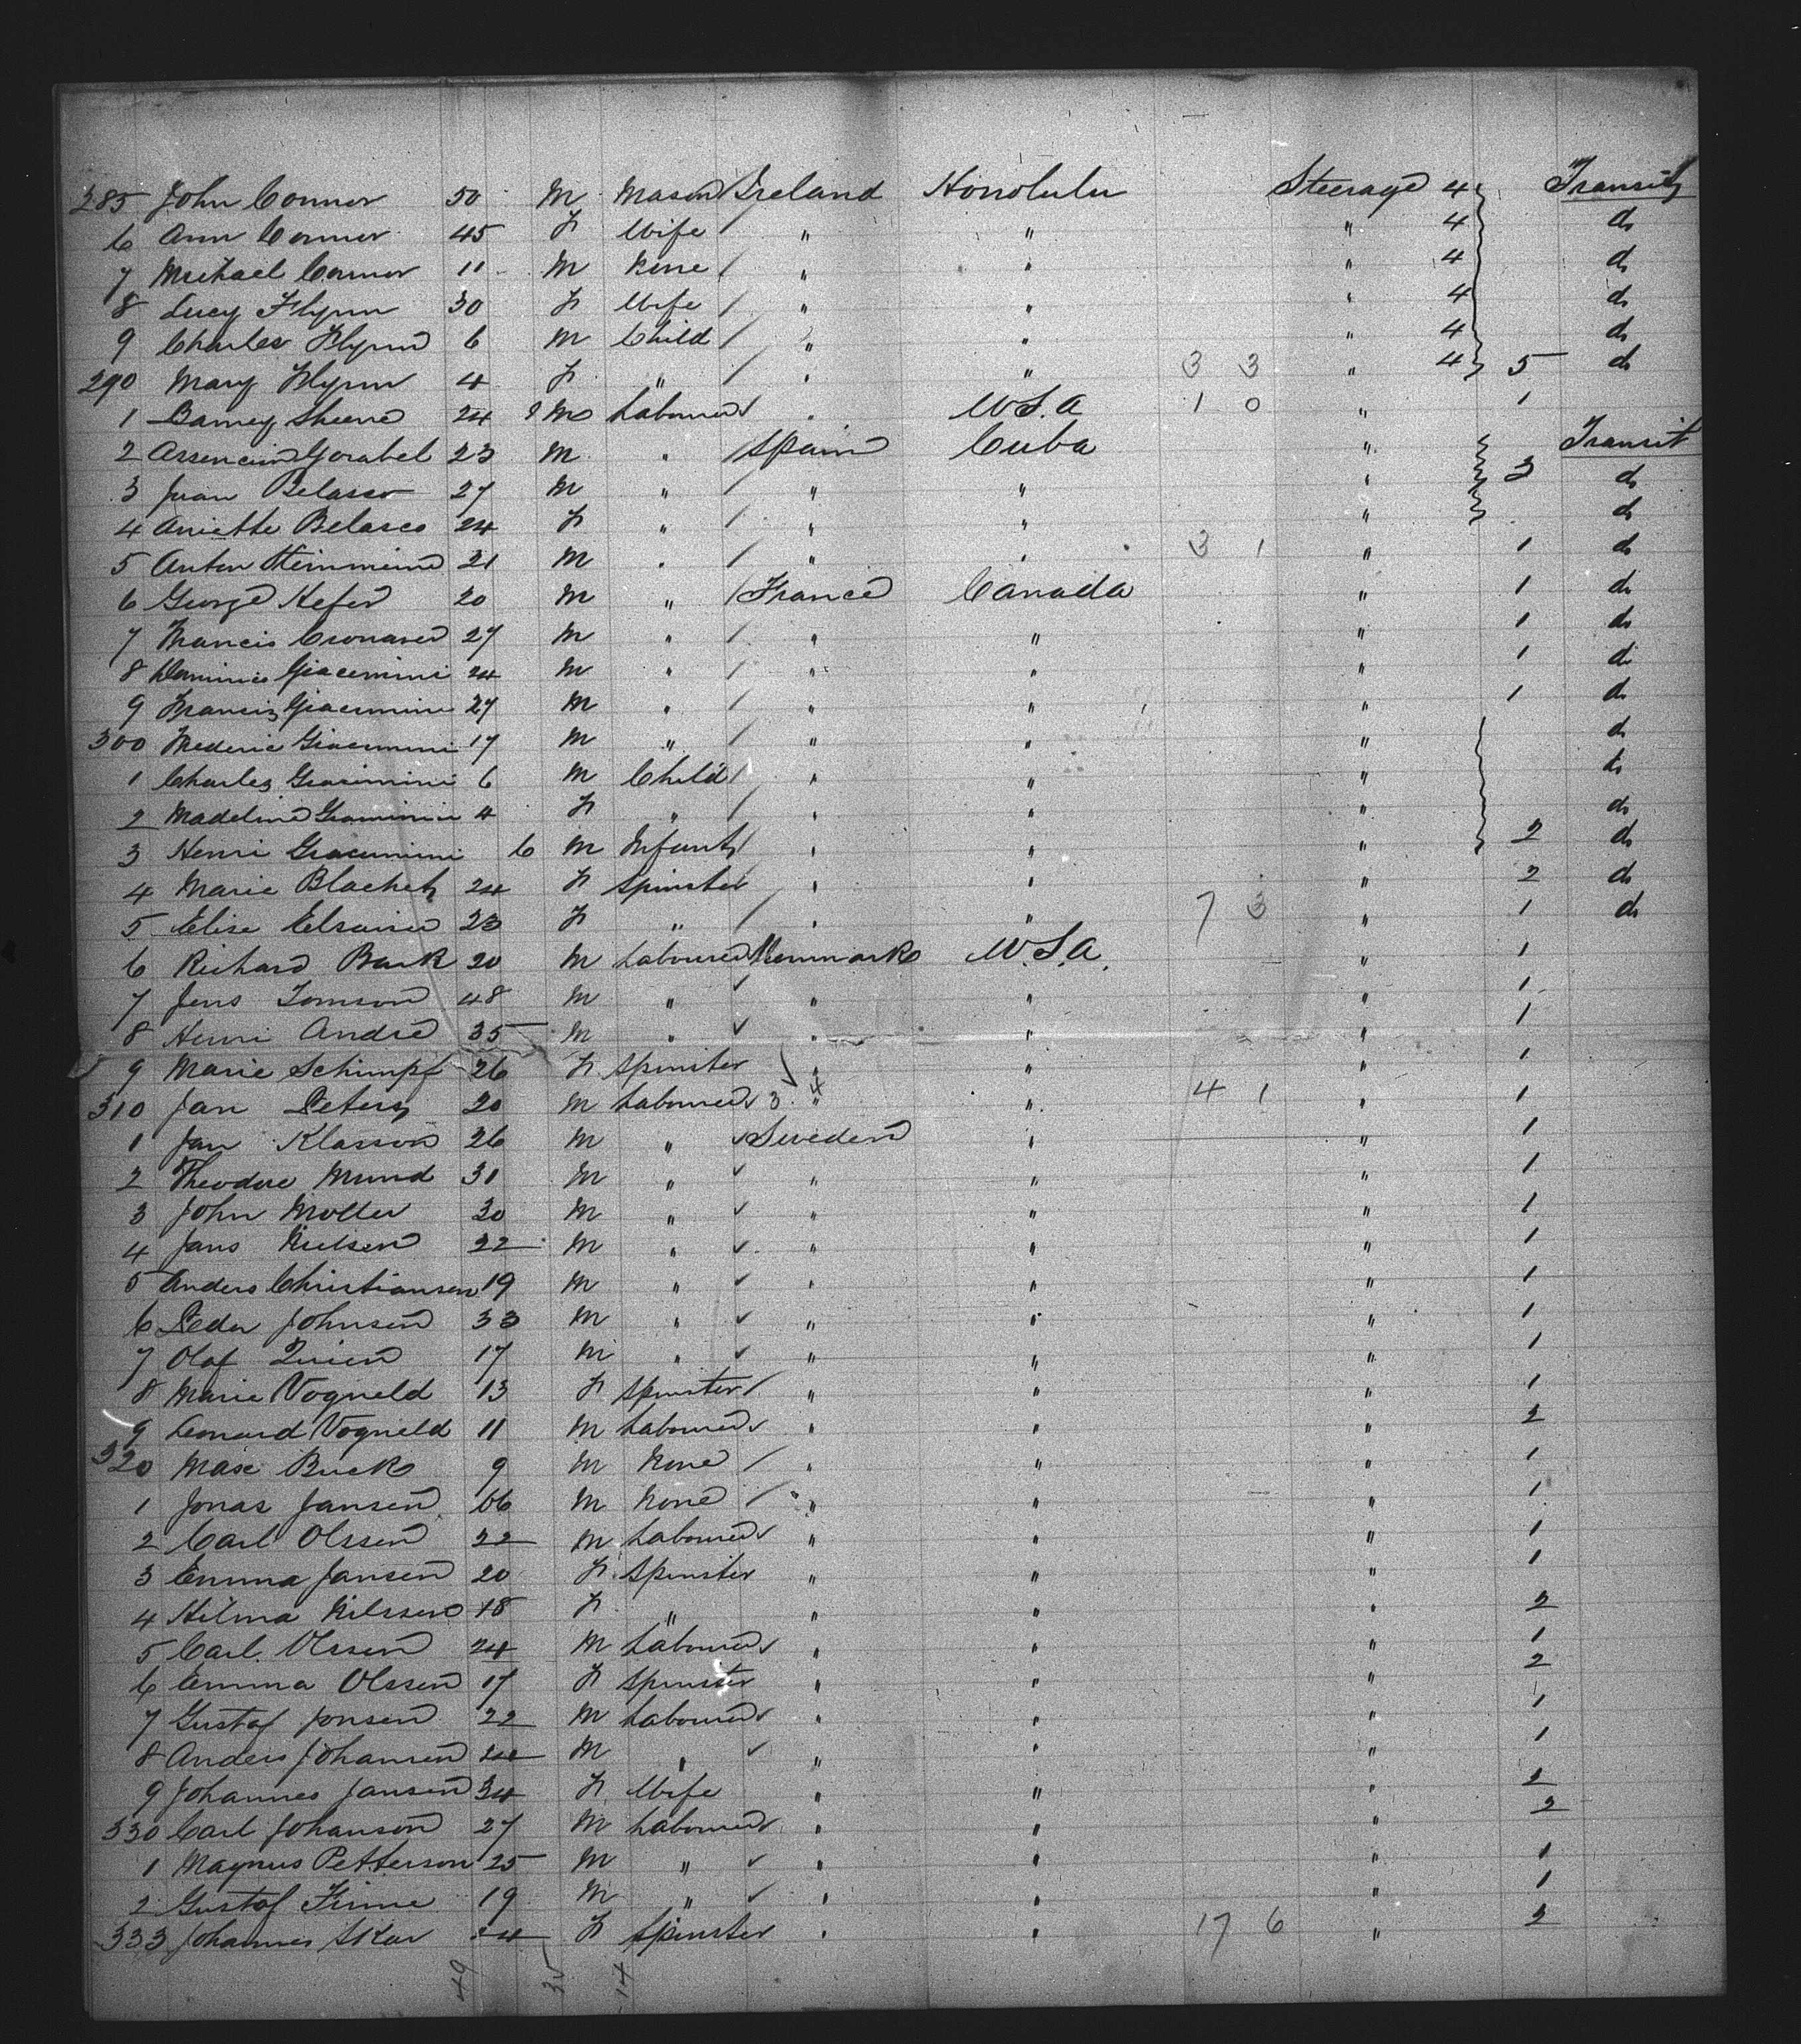 285 John Connor 50 M Mason Ireland Honolulu Steerage 4 Transit
6 Ann Connor 45 F Wife / " " " 4 do
7 Michael Connor 11 M None / " " " 4 do
8 Lucy Flynn 30 F Wife / " " " 4 do
9 Charles Flynn 6 M Child / " " " 4 do
290 Mary Flynn 4 F " / " " 3 3 " 4 5 do
1 Barney 24 M Labourer " U.S.A 1 0 " 1
2 Gorabel 23 M " / Spain Cuba " Transit
3 Juan Belasco 27 M " / " " " 3 do
4 Aniette Belasco 24 F " / " " " do
5 Anton 21 M " / " " 3 1 " 1 do
6 George Hefer 20 M " / France Canada " 1 do
7 Francis 27 M " / " " " 1 do
8 Dominic Giacomini 24 M " / " " " 1 do
9 Francis Giacomini 27 M " / " " " 1 do
300 Frederic Giacomini 17 M " / " " " do
1 Charles Giacomini 6 M Child / " " " do
2 Madeline Giacomini 4 F " / " " " do
3 Henri Giacomini 6 M Infant / " " " 2 do
4 Marie Blachet 24 F Spinster " " " 2 do
5 Elise 23 F " / " " 7 3 " 1 do
6 Richard Bark 20 M Labourer Denmark U.S.A. " 1
7 Jens Tomson 48 M " ✓ " " " 1
8 Henri André 35 M " ✓ " " " 1
9 Marie Schimpf 26 F Spinster " " " 1
310 Jan Peters 20 M Labourer 3 4 " " 4 1 " 1
1 Jan Klasson 26 M " ✓ Sweden " " 1
2 Theodore Mund 31 M " ✓ " " " 1
3 John Moller 30 M " ✓ " " " 1
4 Jans Nielsen 22 M " ✓ " " " 1
5 Anders Christiansen 19 M " ✓ " " " 1
6 Peder Johnsen 33 M " ✓ " " " 1
7 Olaf 17 M " ✓ " " " 1
8 Marie Vogneld 13 F Spinster / " " " 1
9 Leonard Vogneld 11 M Labourer " " " 2
320 Max Buck 9 M None / " " " 1
1 Jonas Jansen 66 M None / " " " 1
2 Carl Olssen 22 M Labourer " " " 1
3 Emma Jansen 20 F Spinster " " " 1
4 Hilma Nilssen 18 F " " " " 2
5 Carl Olssen 24 M Labourer " " " 1
6 Emma Olssen 17 F Spinster " " " 2
7 Gustaf Jonsen 22 M Labourer " " " 1
8 Anders Johansen 24 M " ✓ " " " 1
9 Johannes Jansen 34 F Wife " " " 2
330 Carl Johanson 27 M Labourer " " " 2
1 Magnus Petterson 25 M " ✓ " " " 1
2 Gustaf 19 M " ✓ " " " 1
333 Johannes Skar 24 F Spinster " " 17 6 " 2
49 35 14